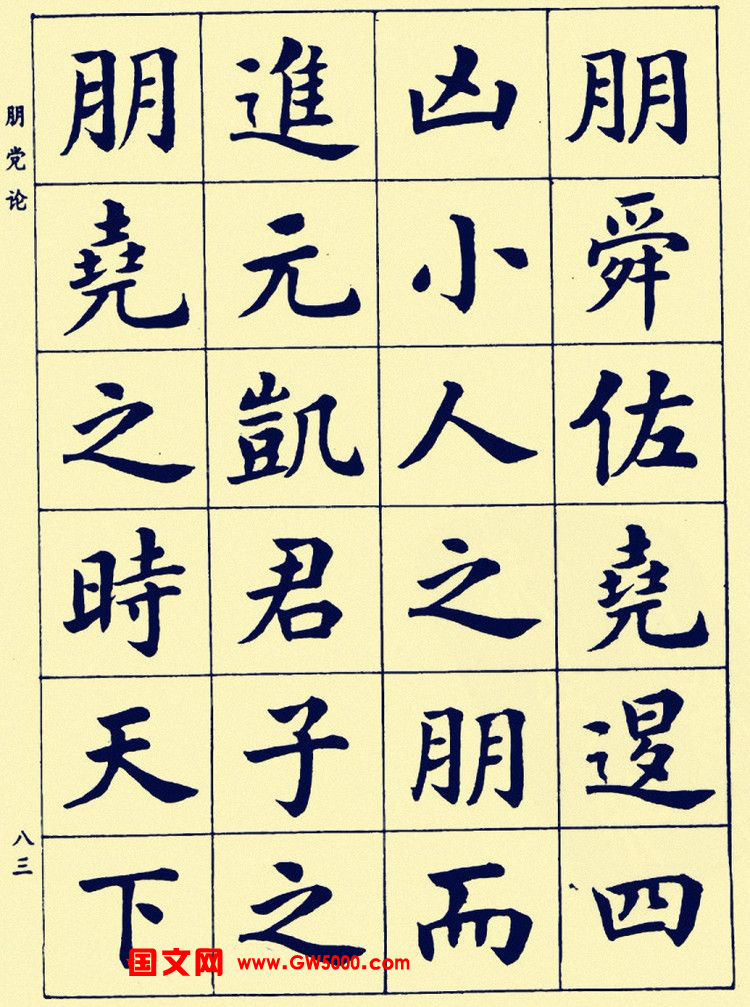 朋舜佐堯退四
凶小人之朋而
進元凱君子之
朋堯之時天下
朋党论
八三
国文网 www.GW5000.com